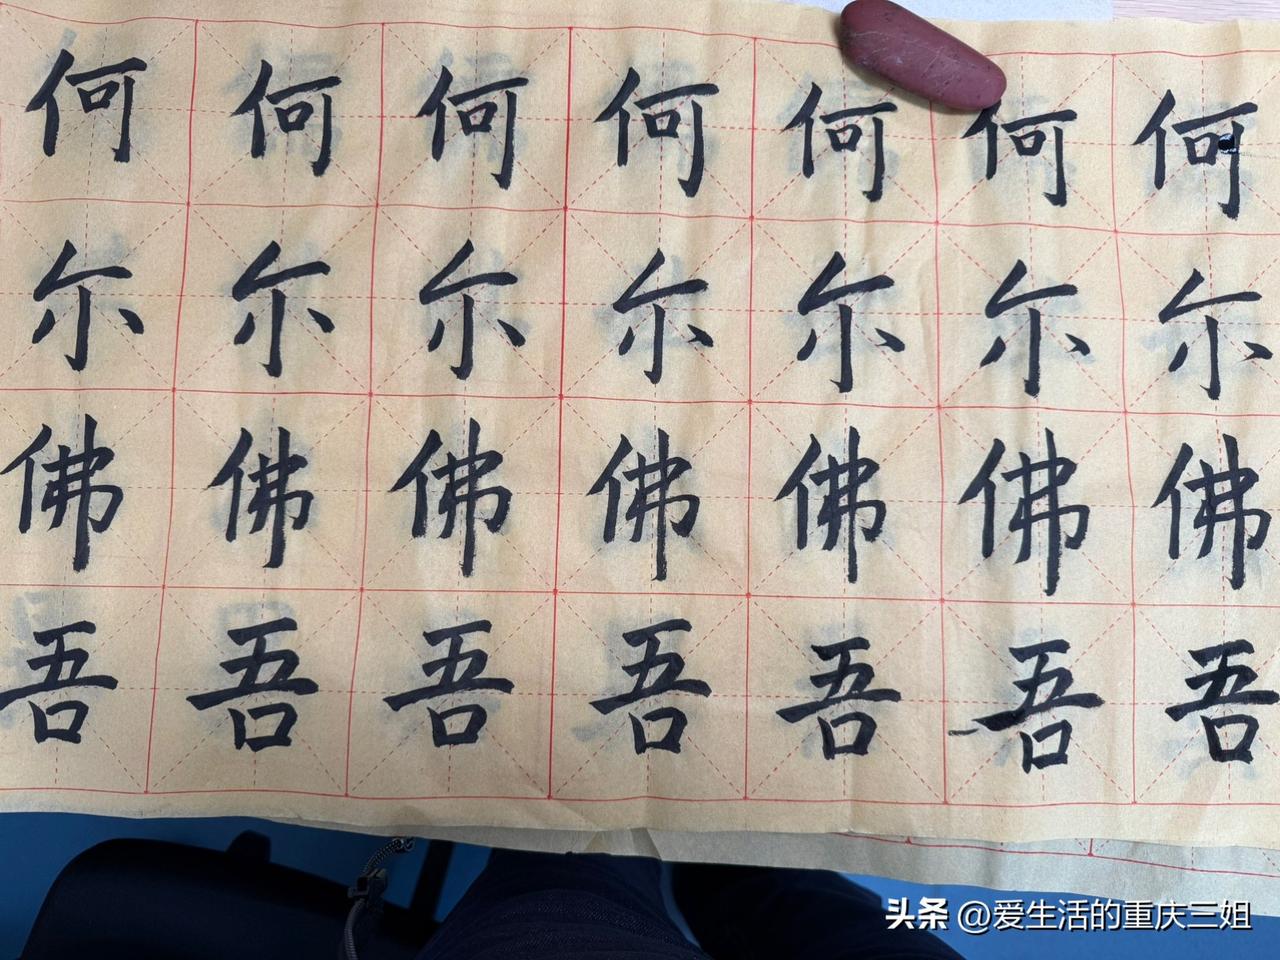 何何何何何何何
尓尓尓尓尓尓尓
佛佛佛佛佛佛佛
吾吾吾吾吾吾吾
头条 @爱生活的重庆三姐